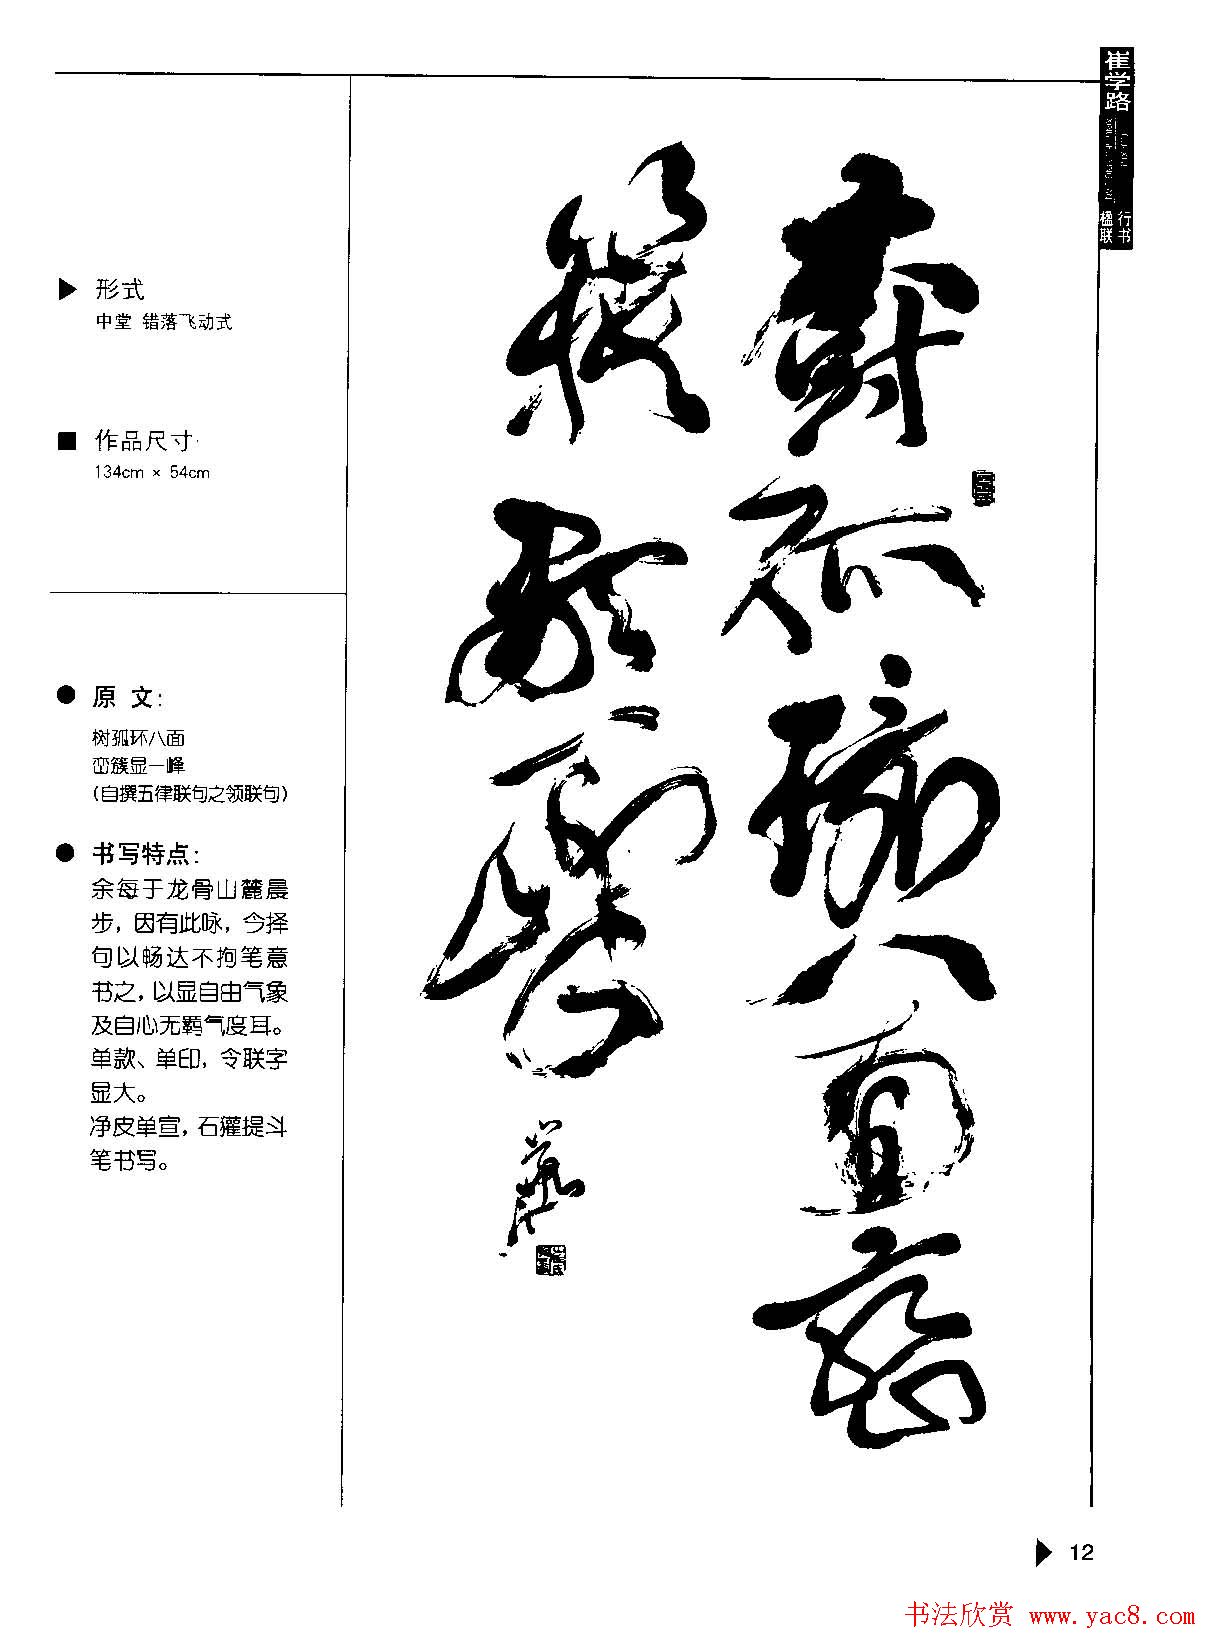 崔学路
行书
楹联
▶ 形式
中堂 错落飞动式
■ 作品尺寸
134cm × 54cm
● 原 文：
树孤环八面
峦簇显一峰
（自撰五律联句之领联句）
● 书写特点：
余每于龙骨山麓晨
步，因有此咏，今择
句以畅达不拘笔意
书之，以显自由气象
及自心无羁气度耳。
单款、单印，令联字
显大。
净皮单宣，石獾提斗
笔书写。
树孤环八面峦
簇显一峰
▶ 12
书法欣赏 www.yac8.com